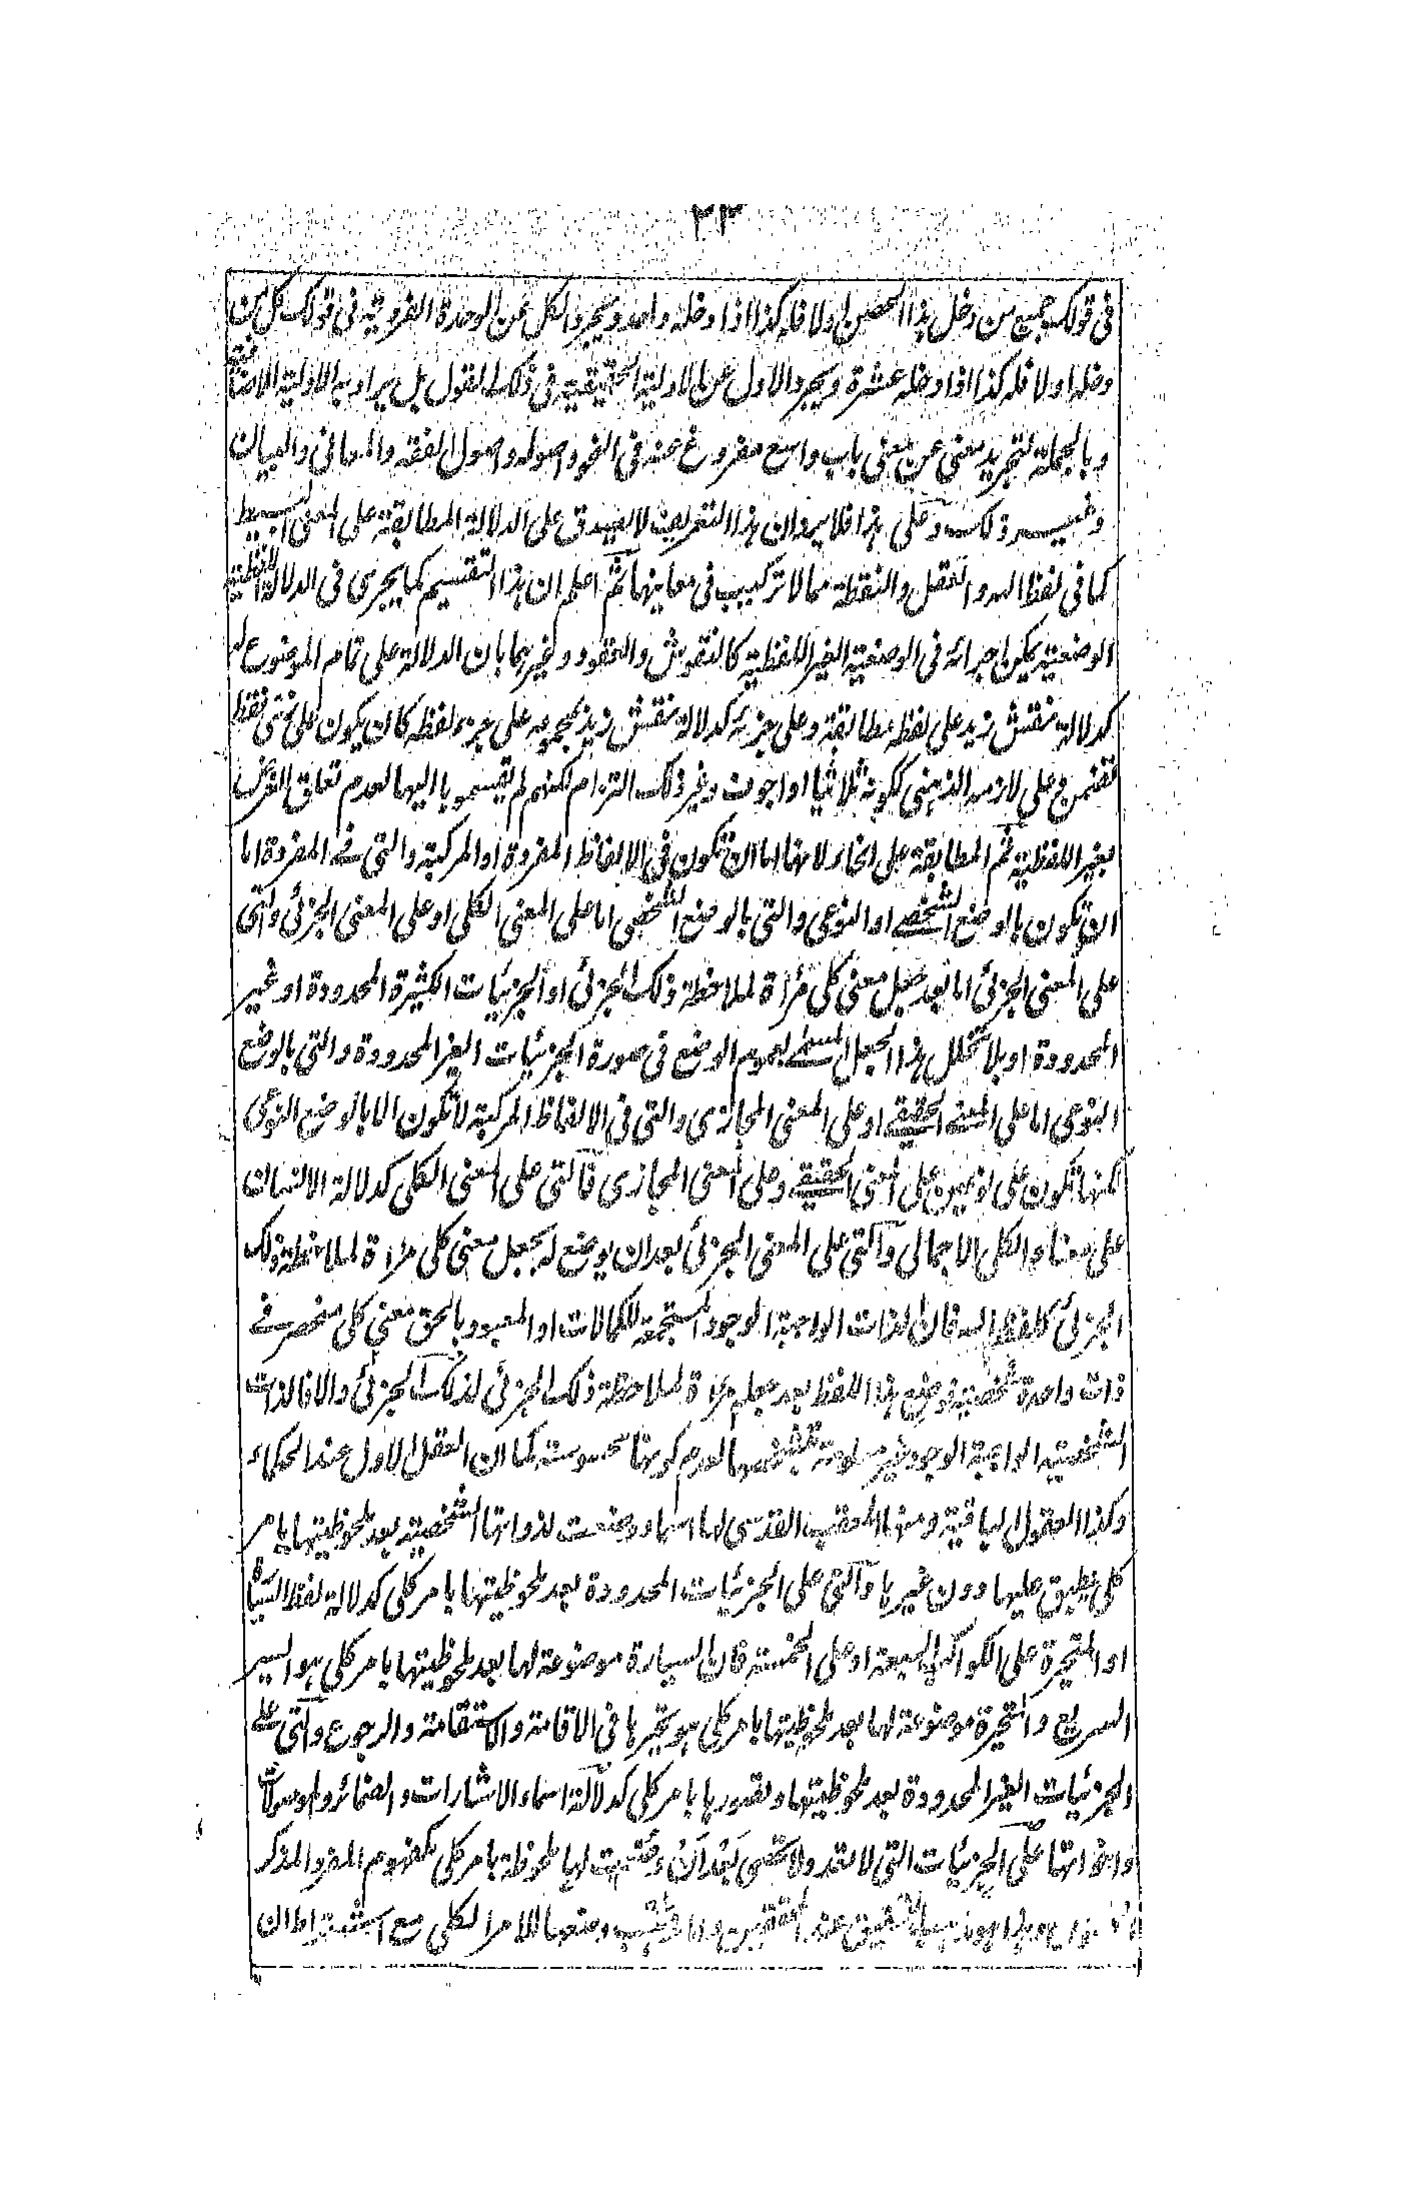 ٢٣
فى قولك جميع من دخل هذا الحصن اولا فله كذا اذا دخله واحد ويجرد الكل عن الوحدة الفردية فى قولك كل من
دخله اولا فله كذا اذا دخله عشرة ويجرد الاول عن الاولية الحقيقية فى ذلك القول بل يراد به الاولية الاضافية
وبالجملة لتجريد معنى عن معنى باب واسع مفروغ عنه فى النحو واصوله واصول الفقه والمعانى والبيان
وغير ذلك وعلى هذا فلا يرد ان هذا التعريف لا يصدق على الدلالة المطابقة على المعنى البسيط
كما فى لفظ الله والعقل والنقطة مما لا تركيب فى معاينها ثم اعلم ان هذا التقسيم كما يجرى فى الدلالة اللفظية
الوضعية يمكن اجرائه فى الوضعية الغير اللفظية كالنقوش والعقود وغيرهما بان الدلالة على تمام الموضوع له
كدلالة نقش زيد على لفظه مطابقة وعلى جزئه كدلالة نقش زيد بمجموعه على جزء لفظه كان يكون على فقط
تضمن وعلى لازمه الذهنى ككونه ثلاثيا او اجوف وغير ذلك التزام لكنهم لم يقسموها اليها لعدم تعلق الغرض
بغير اللفظية ثم المطابقة على انحاء لانها اما ان تكون فى الالفاظ المفردة او المركبة والتى فى المفردة اما
ان تكون بالوضع الشخصى او النوعى والتى بالوضع الشخصى اما على المعنى الكلى او على المعنى الجزئى والتى
على المعنى الجزئى اما بعد جعل معنى كلى مرأة لملاحظة ذلك الجزئى او الجزئيات الكثيرة المحدودة او غير
المحدودة او بلا تخلل هذا الجعل المسمى بعموم الوضع فى صورة الجزئيات الغير المحدودة والتى بالوضع
النوعى اما على المعنى الحقيقى او على المعنى المجازى والتى فى الالفاظ المركبة لا تكون الا بالوضع النوعى
لكنها تكون على نوعين على المعنى الحقيقى وعلى المعنى المجازى فالتى على المعنى الكلى كدلالة الانسان
على معناه الكل الاجمالى والتى على المعنى الجزئى بعد ان يوضع له بجعل معنى كلى مرأة لملاحظة ذلك
الجزئى كلفظ الله فان الذات الواجبة الوجود المستجمعة للكمالات او المعبود بالحق معنى كلى منحصر فى
ذات واحدة شخصية فوضع هذا اللفظ بعد جعله مرأة لملاحظة ذلك الجزئى لذلك الجزئى والا فالذات
الشخصية الواجبة الوجود غير معلومة بشخصها لعدم كونها محسوسة كما ان العقل الاول عند الحكماء
وكذا العقول الباقية ومنها الملقب القدسى لها اسماء وضعت لذواتها الشخصية بعد ملحوظيتها بامر
كلى يطبق عليها دون غيرها والتى على الجزئيات المحدودة بعد ملحوظيتها بامر كلى كدلالة لفظ السيارة
او المتحيرة على الكواكب السبعة او على الخمسة فان السيارة موضوعة لها بعد ملحوظيتها بامر كلى هو السير
السريع والمتحيرة موضوعة لها بعد ملحوظيتها بامر كلى هو تحيرها فى الاقامة والاستقامة والرجوع والتى على
الجزئيات الغير المحدودة بعد ملحوظيتها وتصورها بامر كلى كدلالة اسماء الاشارات والضمائر والموصولات
واخواتها على الجزئيات التى لا تعد ولا تحصى بعد ان وضعت لها ملحوظة بامر كلى كمفهوم المفرد المذكر
عند المحققين وضعها للامر الكلى مع اشتراط ان